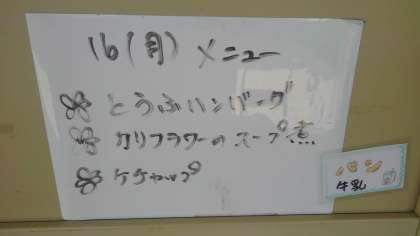 16(月)メニュー
とうふハンバーグ
カリフラワーのスープ煮
ケチャップ
パン
牛乳